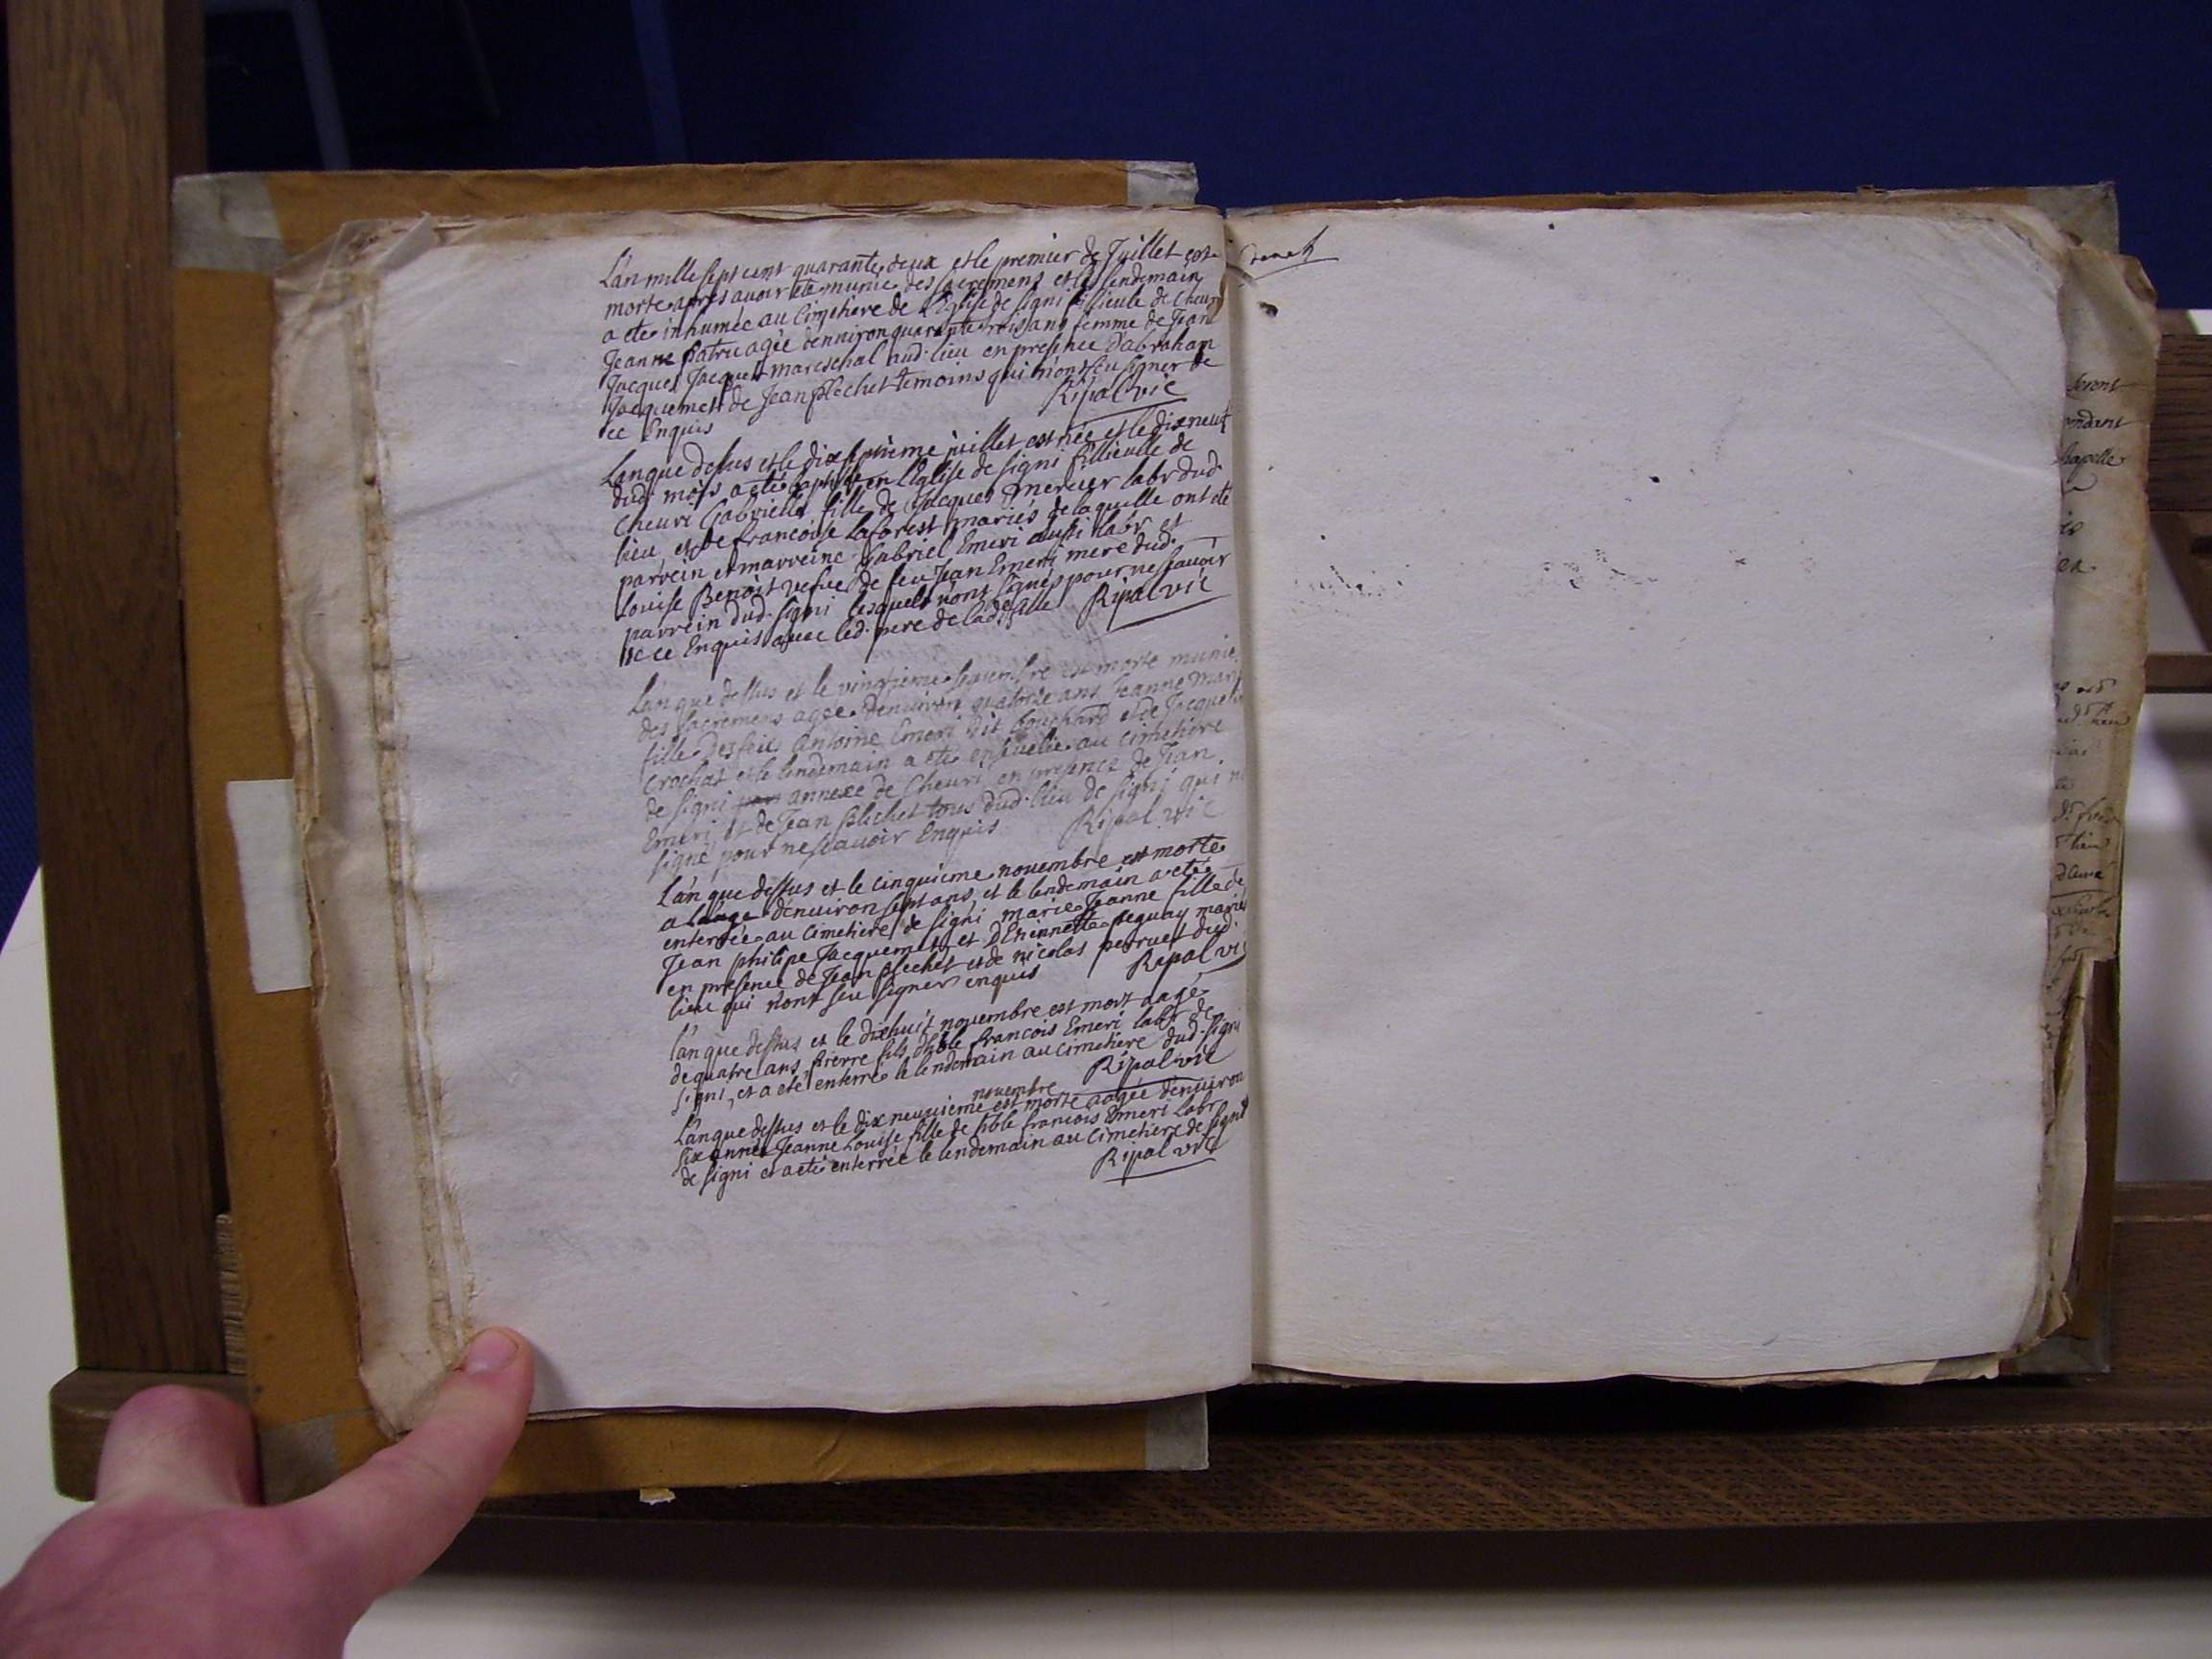 L'an mille sept cent quarante deux et le premier de Juillet est
morte apres avoir été munie des sacremens et le lendemain
a ete inhumée au Cimetiere de L'Eglise de signi fillieule de Cheuri
Jeanne patru agée denviron quarante trois ans femme de Jean
Jacques Jacquet mareschal aud. lieu en presence d'abraham
Jacquemet de Jean plechet temoins qui n'ont sçu signer de
ce Enquis Ripal vic
L'an que dessus et le dix septième juillet est née et le dixneuf
dud. mois a eté baptisée en L'Eglise de signi fillieulle de
Cheuri Gabrielle fille de Jacques mercier labr dud.
lieu et de francoise Laforest mariés de laquelle ont ete
parrein et marreine Gabriel Emeri aussi labr et
Louise Benoit vefue de feu Jean Emeri mere dud.
parrein dud. signi lesquels n'ont signés pour ne sçauoir
de ce Enquis auec led. pere de lad. fille Ripal vic
L'an que dessus et le vingtieme septembre est morte munie
des sacremens agée denuiron quatorze ans Jeanne Mari
fille de feu Antoine Emeri dit bouchard et de Jacqueli
Crochat et le lendemain a eté enseuelie au cimetiere
de signi annexe de Cheuri en presence de Jean
Emeri et de Jean plechet tous dud. lieu de signi qui n
signé pour ne sçauoir Enquis Ripal vic
L'an que dessus et le cinquieme nouembre est morte
a l'auge denuiron sept ans, et le lendemain a eté
enterrée au cimetiere de signi marie Jeanne fille de
Jean philipe Jacquemet et D'Etiennette peguay mariés
en presence de Jean plechet et de nicolas perruet dud.
lieu qui n'ont sceu signer enquis Ripal vi
L'an que dessus et le dixhuit nouembre est mort aagé
de quatre ans, pierre fils d'hble francois Emeri labr de
signi, et a eté enterré le lendemain au cimetiere dud. signi
Ripal vic
nouembre
L'an que dessus et le dix neuuieme est morte aagée denuiron
six années Jeanne Louise fille de hble francois Emeri Labr
de signi et a eté enterrée le lendemain au cimetiere de signi
Ripal vic
serent
ondant
hapelle